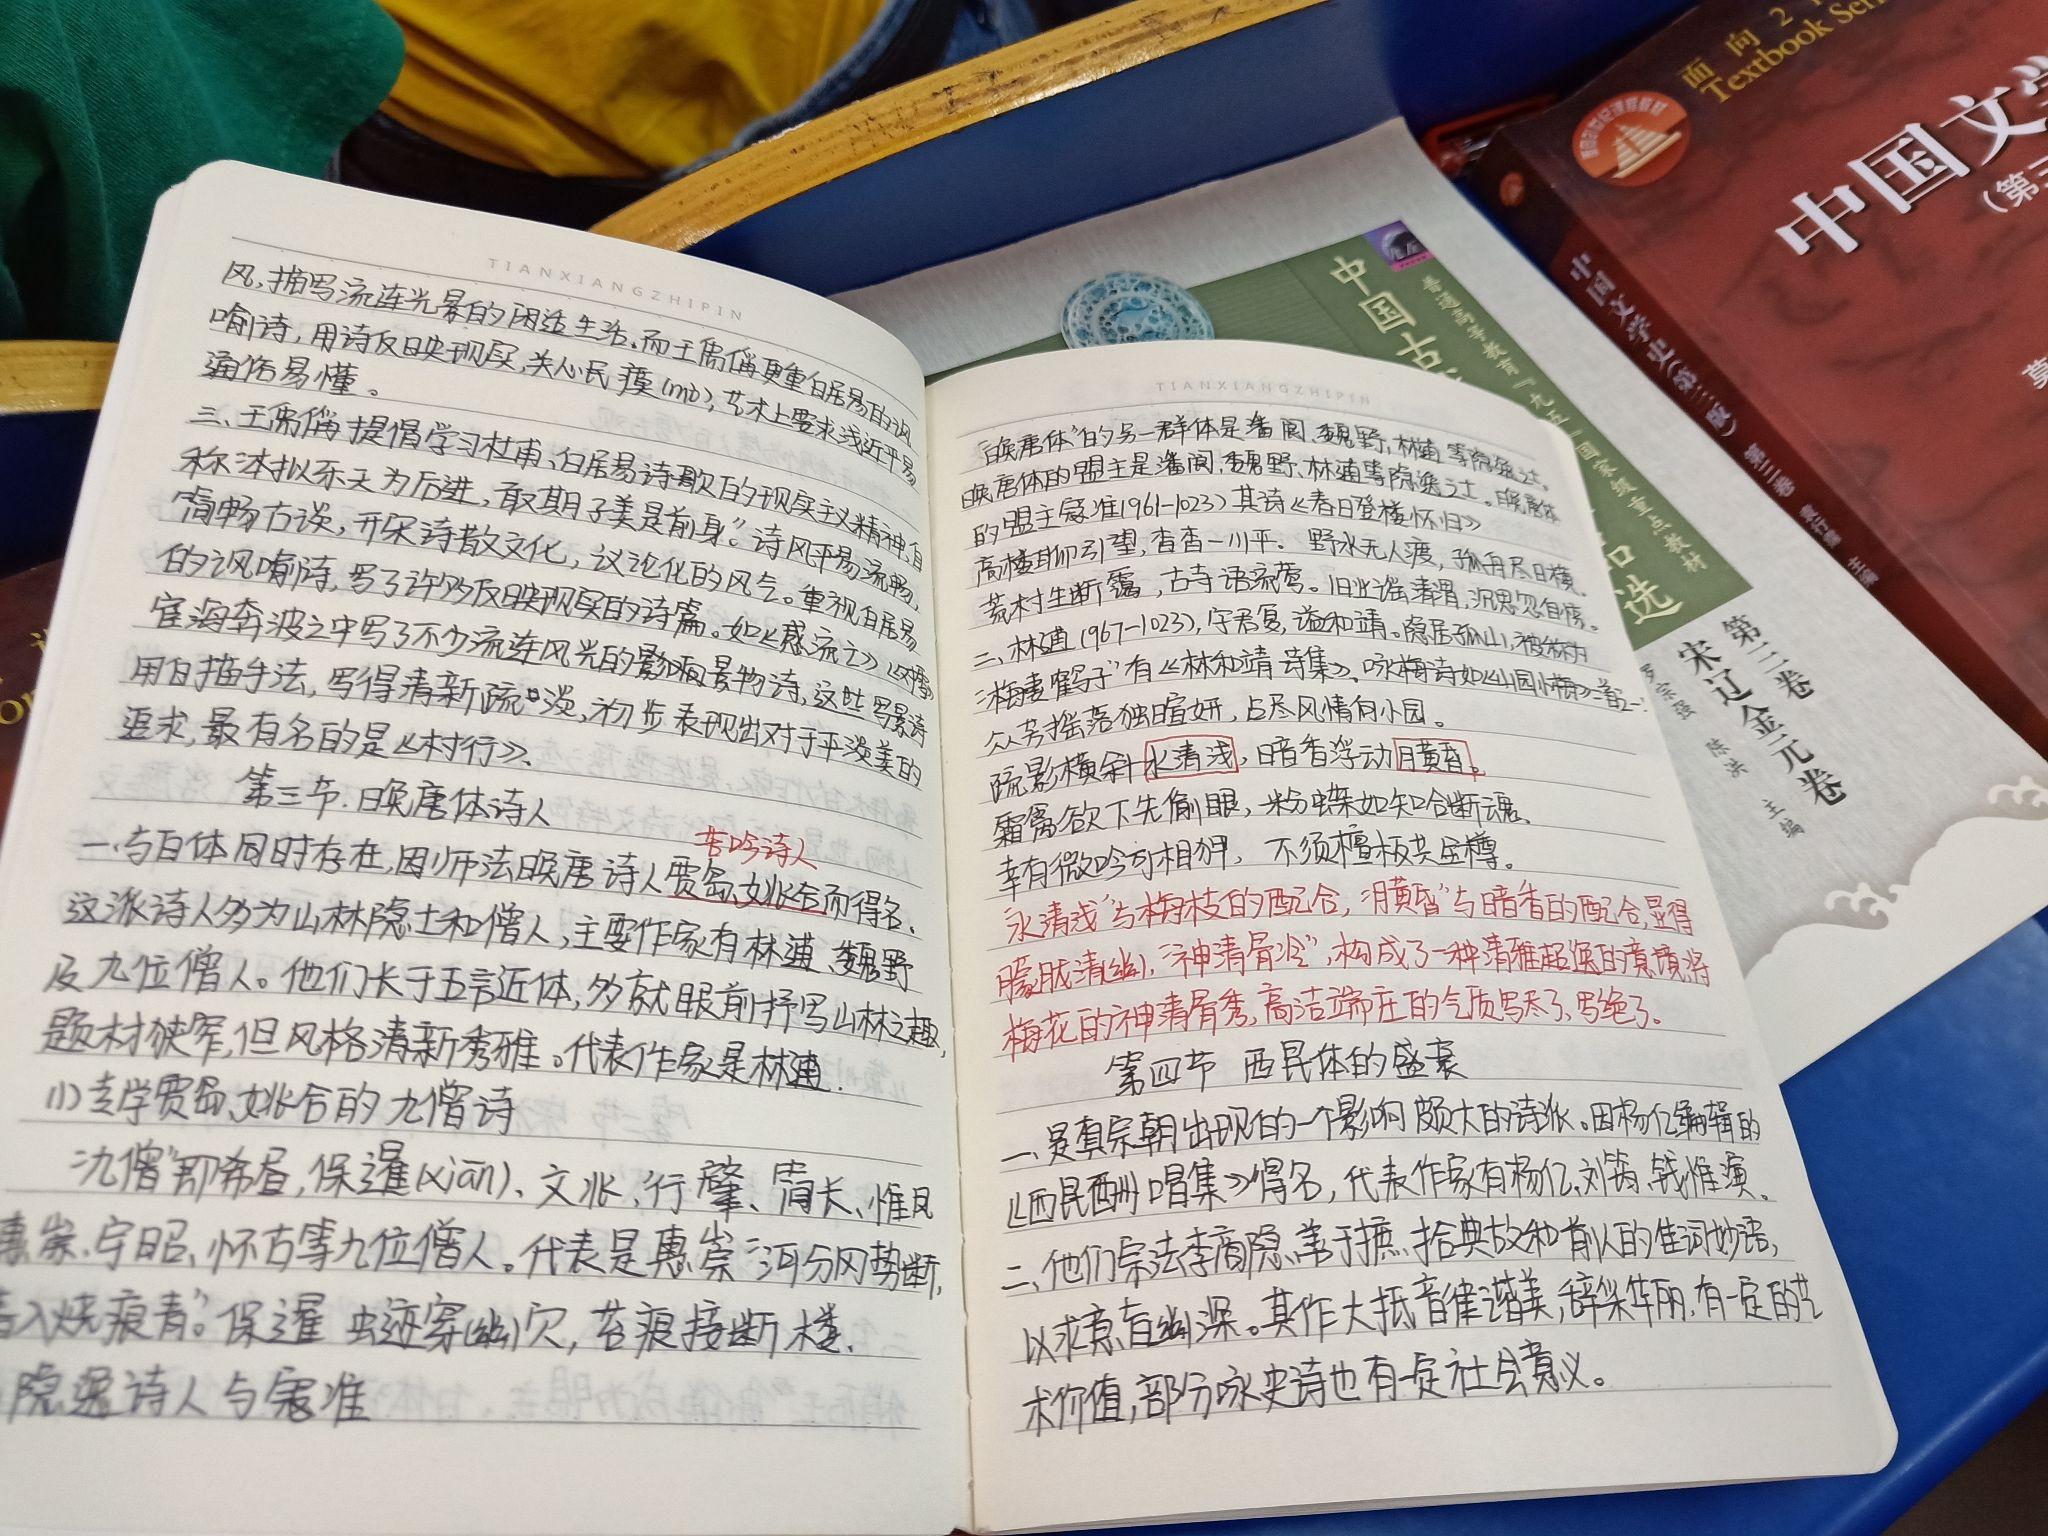 TIANXIANGZHIPIN
风,描写流连光景的闲适生活。而王禹偁更重白居易的讽
喻诗,用诗反映现实,关心民瘼(mò),艺术上要求浅近平易
通俗易懂。
三、王禹偁提倡学习杜甫、白居易诗歌的现实主义精神,自
称“本拟乐天为后进,敢期子美是前身”。诗风平易流畅,
简畅古淡,开宋诗散文化,议论化的风气。重视白居易
的讽喻诗,写了许多反映现实的诗篇。如《感流亡》《对雪》
宦海奔波之中写了不少流连风光的影响景物诗,这些写景诗
用白描手法,写得清新疏淡,初步表现出对于平淡美的
追求,最有名的是《村行》、
第三节.晚唐体诗人
苦吟诗人
一、与白体同时存在,因师法晚唐诗人贾岛、姚合而得名.
这派诗人多为山林隐士和僧人,主要作家有林逋、魏野
及九位僧人。他们长于五言近体,多就眼前抒写山林之趣,
题材狭窄,但风格清新秀雅。代表作家是林逋.
(1)专学贾岛、姚合的九僧诗
“九僧”即希昼,保暹(xiān)、文兆,行肇、简长、惟凤
惠崇、宇昭、怀古等九位僧人。代表是惠崇“河分冈势断,
入烧痕青”。保暹 虫迹穿(幽)穴,苔痕接断楼.
隐逸诗人与寇准
TIANXIANGZHIPIN
“晚唐体”的另一群体是潘阆、魏野、林逋等隐逸之士。
晚唐体的盟主是潘阆、魏野、林逋等隐逸之士。晚唐体
的盟主寇准(961-1023)其诗《春日登楼怀归》
高楼聊引望,杳杳一川平. 野水无人渡,孤舟尽日横.
荒村生断霭,古寺语流莺。旧业遥清渭,沉思忽自惊。
二、林逋(967-1023),字君复,谥和靖。隐居孤山,被称为
“梅妻鹤子”有《林和靖诗集》、咏梅诗如《山园小梅》二首之一:
众芳摇落独暄妍,占尽风情向小园。
疏影横斜水清浅,暗香浮动月黄昏。
霜禽欲下先偷眼,粉蝶如知合断魂、
幸有微吟可相狎, 不须檀板共金樽。
水清浅”与梅枝的配合,“月黄昏”与暗香的配合,显得
朦胧清(幽),“神清骨冷”,构成了一种清雅超逸的意境,将
梅花的神清骨秀,高洁端庄的气质写尽了,写绝了。
第四节 西昆体的盛衰
一、是真宗朝出现的一个影响颇大的诗派。因杨亿编辑的
《西昆酬唱集》得名,代表作家有杨亿、刘筠、钱惟演、
二、他们宗法李商隐、善于摭拾典故和前人的佳词妙语,
以求意旨幽深。其作大抵音律谐美,辞采华丽,有一定的艺
术价值,部分咏史诗也有一定社会意义。
中国古
选
普通高等教育『九五』国家级重点教材
第三卷
宋辽金元卷
罗宗强 陈洪 主编
面向2
Textbook Ser
中国文学
(第三
中国文学史(第三版) 第三卷 袁行霈 主编